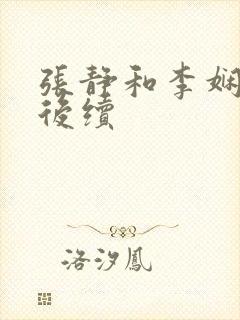 張靜和李娴
後續
洛汐鳳